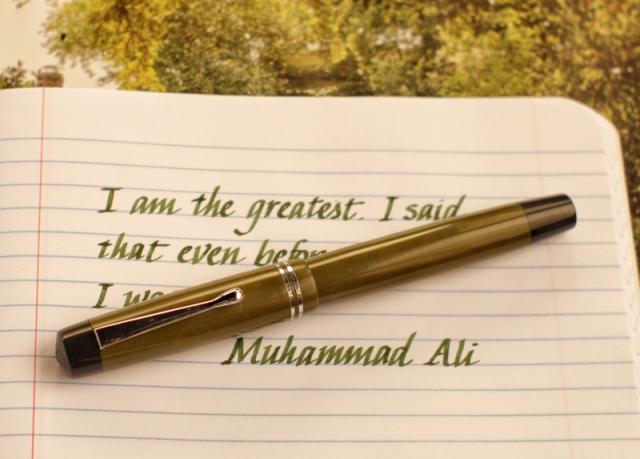 I am the greatest. I said
that even
I
Muhammad Ali